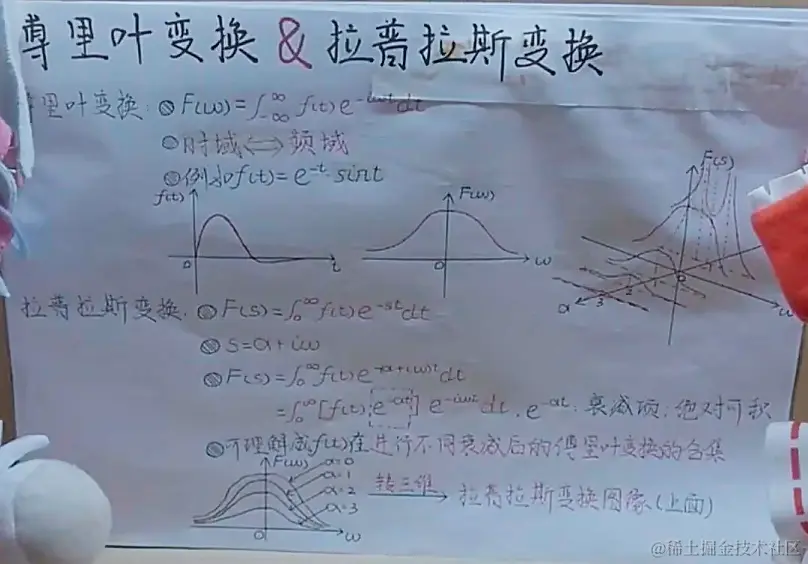 尊里叶变换 & 拉普拉斯变换
里叶变换: ◎ F(ω)=∫_{-∞}^{∞} f(t)e^{-iωt}dt
◎时域⟺频域
◎例如f(t)=e^{-t}·sint
f(t)
0
t
F(ω)
0
ω
F(s)
α
3
2
1
0
ω
拉普拉斯变换: ◎ F(s)=∫_0^∞ f(t)e^{-st}dt
◎ s=α+iω
◎ F(s)=∫_0^∞ f(t)e^{-(α+iω)t}dt
=∫_0^∞ [f(t)e^{-αt}] e^{-iωt}dt, e^{-αt}: 衰减项, 绝对可积
◎可理解成f(t)在进行不同衰减后的傅里叶变换的合集
F(ω)
α=0
α=1
α=2
α=3
0
ω
转三维
拉普拉斯变换图像(上面)
@稀土掘金技术社区